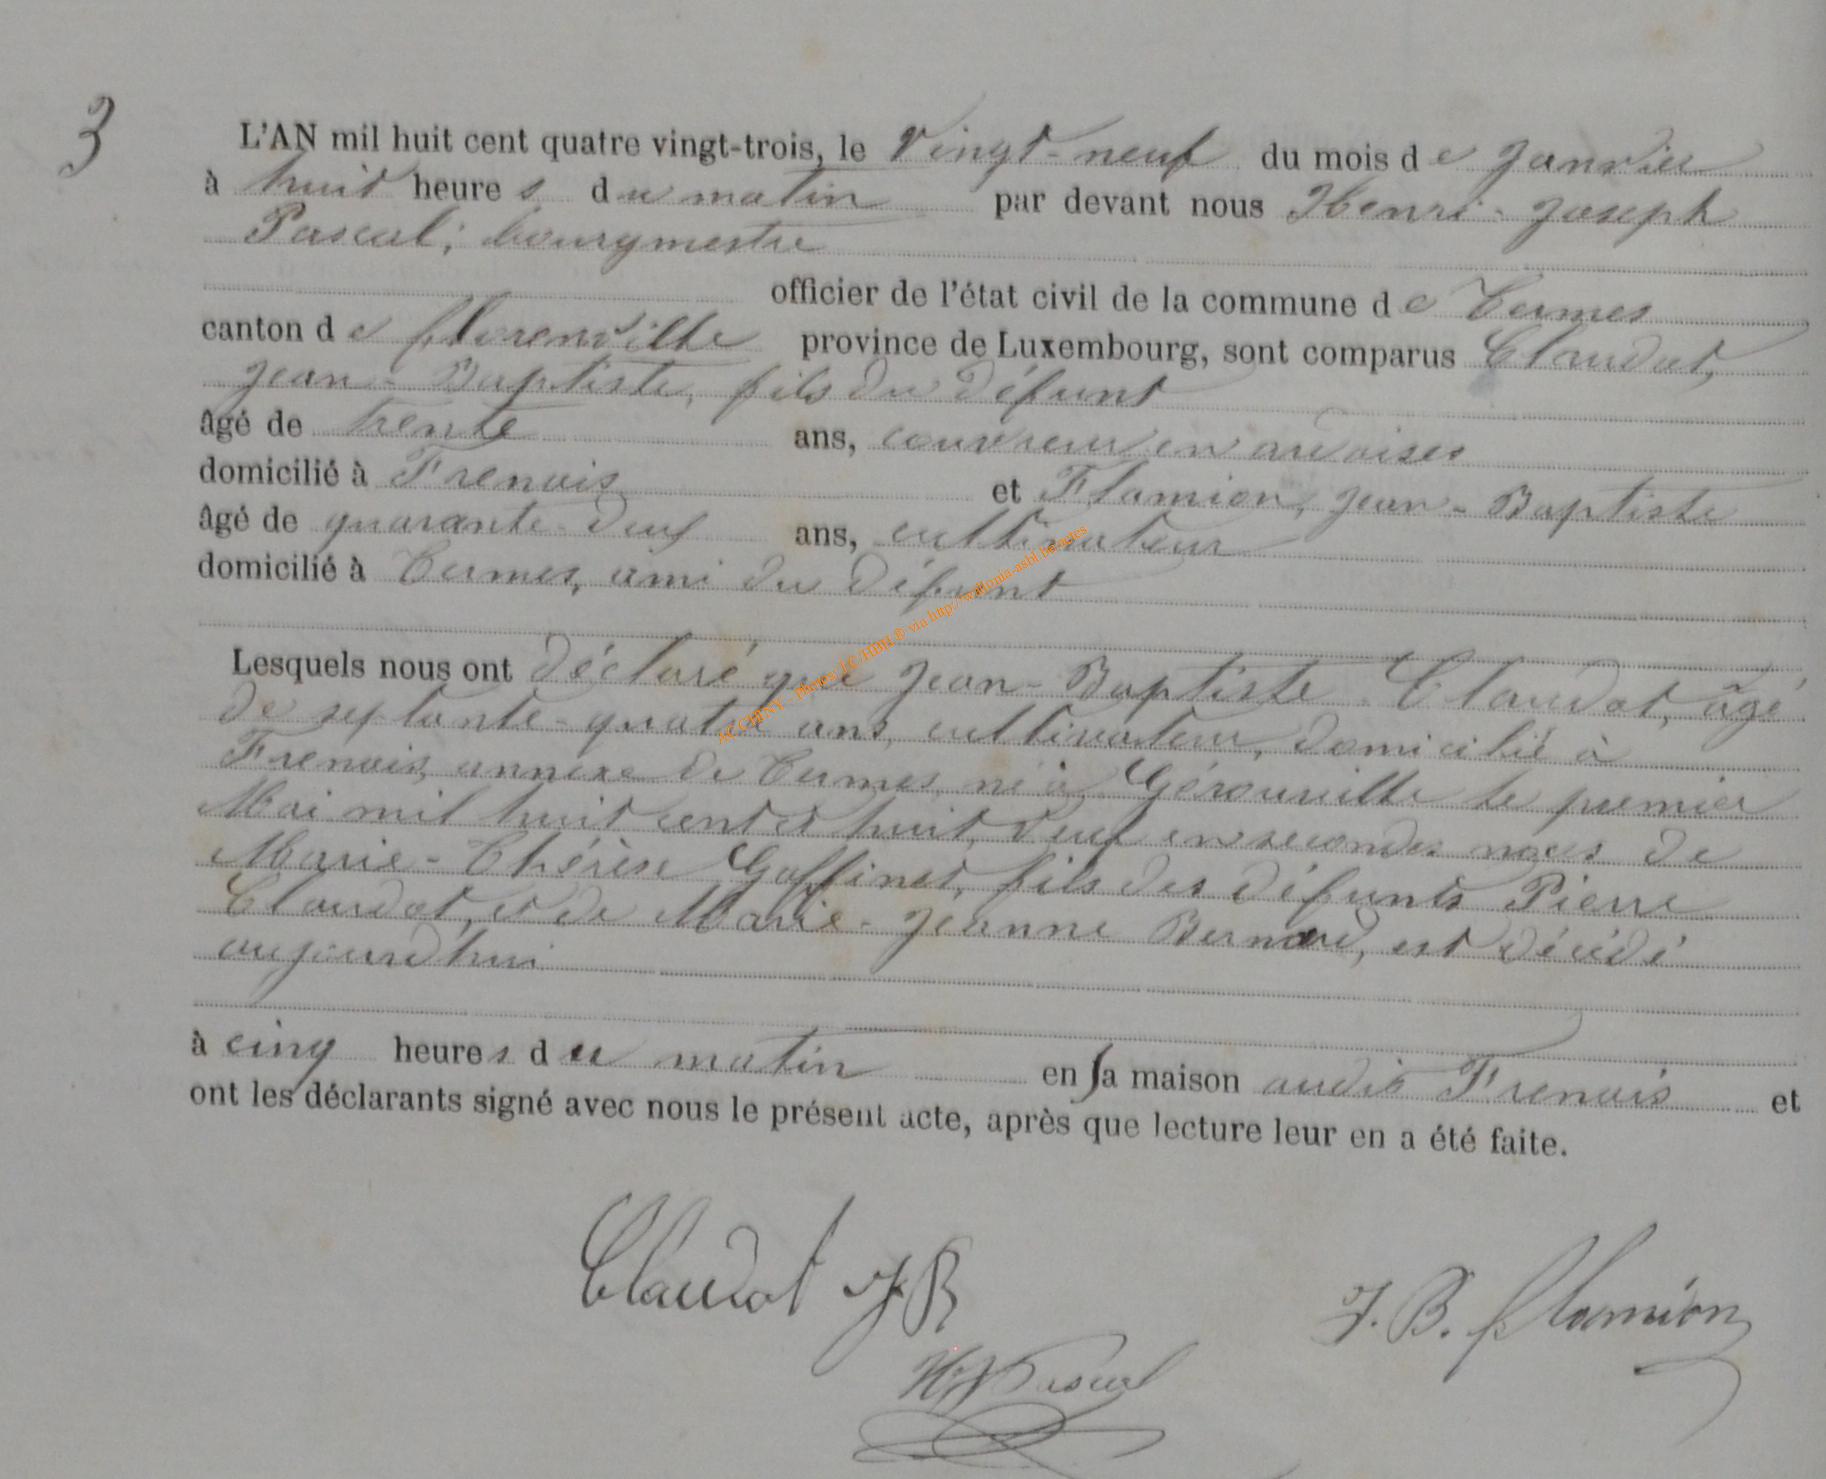 3
L'AN mil huit cent quatre vingt-trois, le vingt-neuf du mois de Janvier
à huit heures du matin par devant nous Henri-Joseph
Pascal, bourgmestre
officier de l'état civil de la commune de Termes
canton de florenville province de Luxembourg, sont comparus Claudot,
Jean-Baptiste, fils du défunt
âgé de trente ans, couvreur en ardoises
domicilié à Frenois et Flamion, Jean-Baptiste
âgé de quarante-deux ans, cultivateur
domicilié à Termes, ami du défunt
Lesquels nous ont déclaré que Jean-Baptiste Claudot, âgé
de septante-quatre ans, cultivateur, domicilié à
Frenois, annexe de Termes, né à Gérouville le premier
Mai mil huit cent et huit, veuf en secondes noces de
Marie-Thérèse Goffinet, fils des défunts Pierre
Claudot, et de Marie-Jeanne Bernard, est décédé
aujourd'hui
à cinq heures du matin en sa maison audit Frenois et
ont les déclarants signé avec nous le présent acte, après que lecture leur en a été faite.
Claudot JB
J. B. flamion
HJPascal